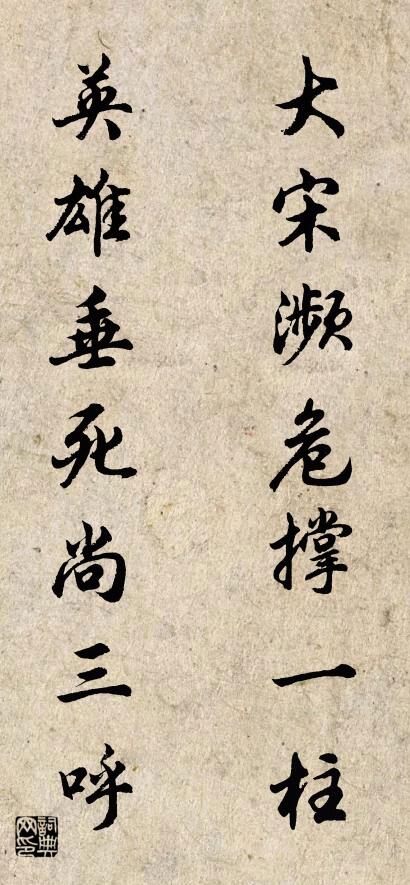 大宋濒危撑一柱
英雄垂死尚三呼
詞典网印